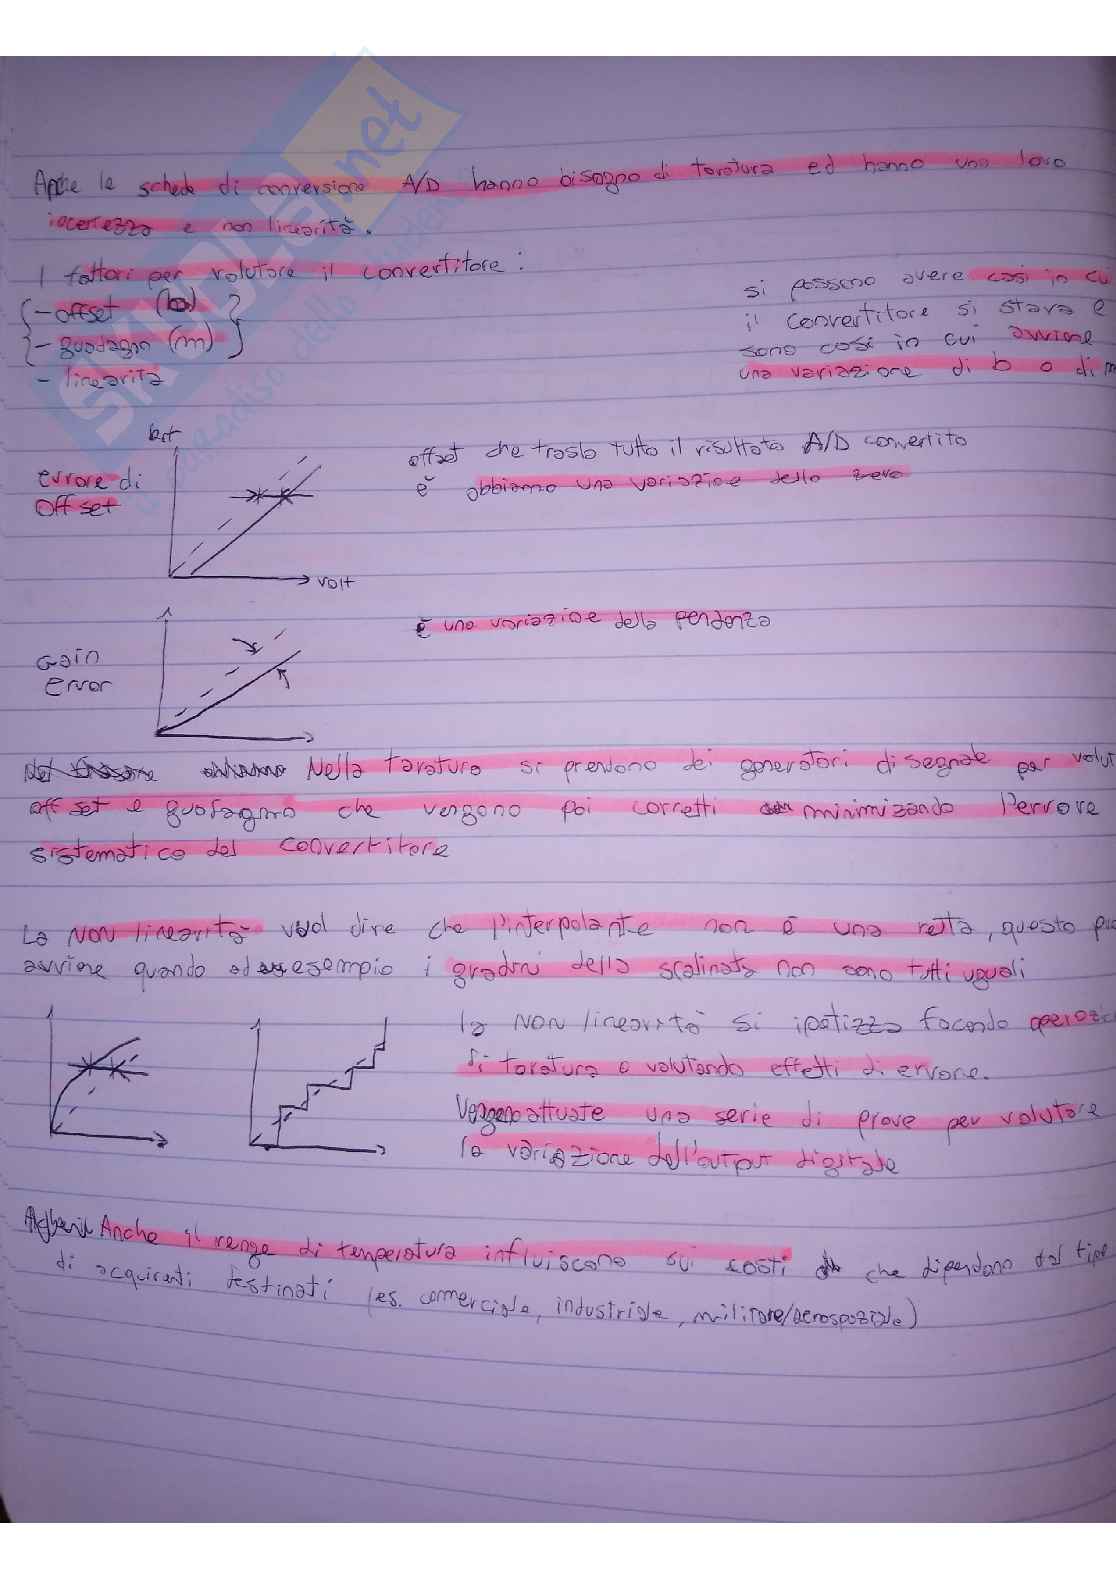 Anche le schede di conversione A/D hanno bisogno di taratura ed hanno una loro
incertezza e non linearità.
I fattori per valutare il convertitore:
- offset (b)
- guadagno (m)
- linearità
si possono avere casi in cu
il convertitore si stara e
sono casi in cui avviene
una variazione di b o di m
errore di
offset
bit
volt
offset che trasla tutto il risultato A/D convertito
è abbiamo una variazione dello zero
Gain
error
è una variazione della pendenza
Nella taratura si prendono dei generatori di segnale per valut
offset e guadagno che vengono poi corretti minimizzando l'errore
sistematico del convertitore
La NON linearità vuol dire che l'interpolante non è una retta, questo può
avviene quando ad esempio i gradini della scalinata non sono tutti uguali
la NON linearità si ipotizza facendo operazi
di taratura e valutando effetti di errore.
Vengono attuate una serie di prove per valutare
la variazione dell'output digitale
Anche il range di temperatura influiscono sui costi che dipendono dal tipo
di acquirenti destinati (es. commerciale, industriale, militare/aerospaziale)
SKUOLA.net